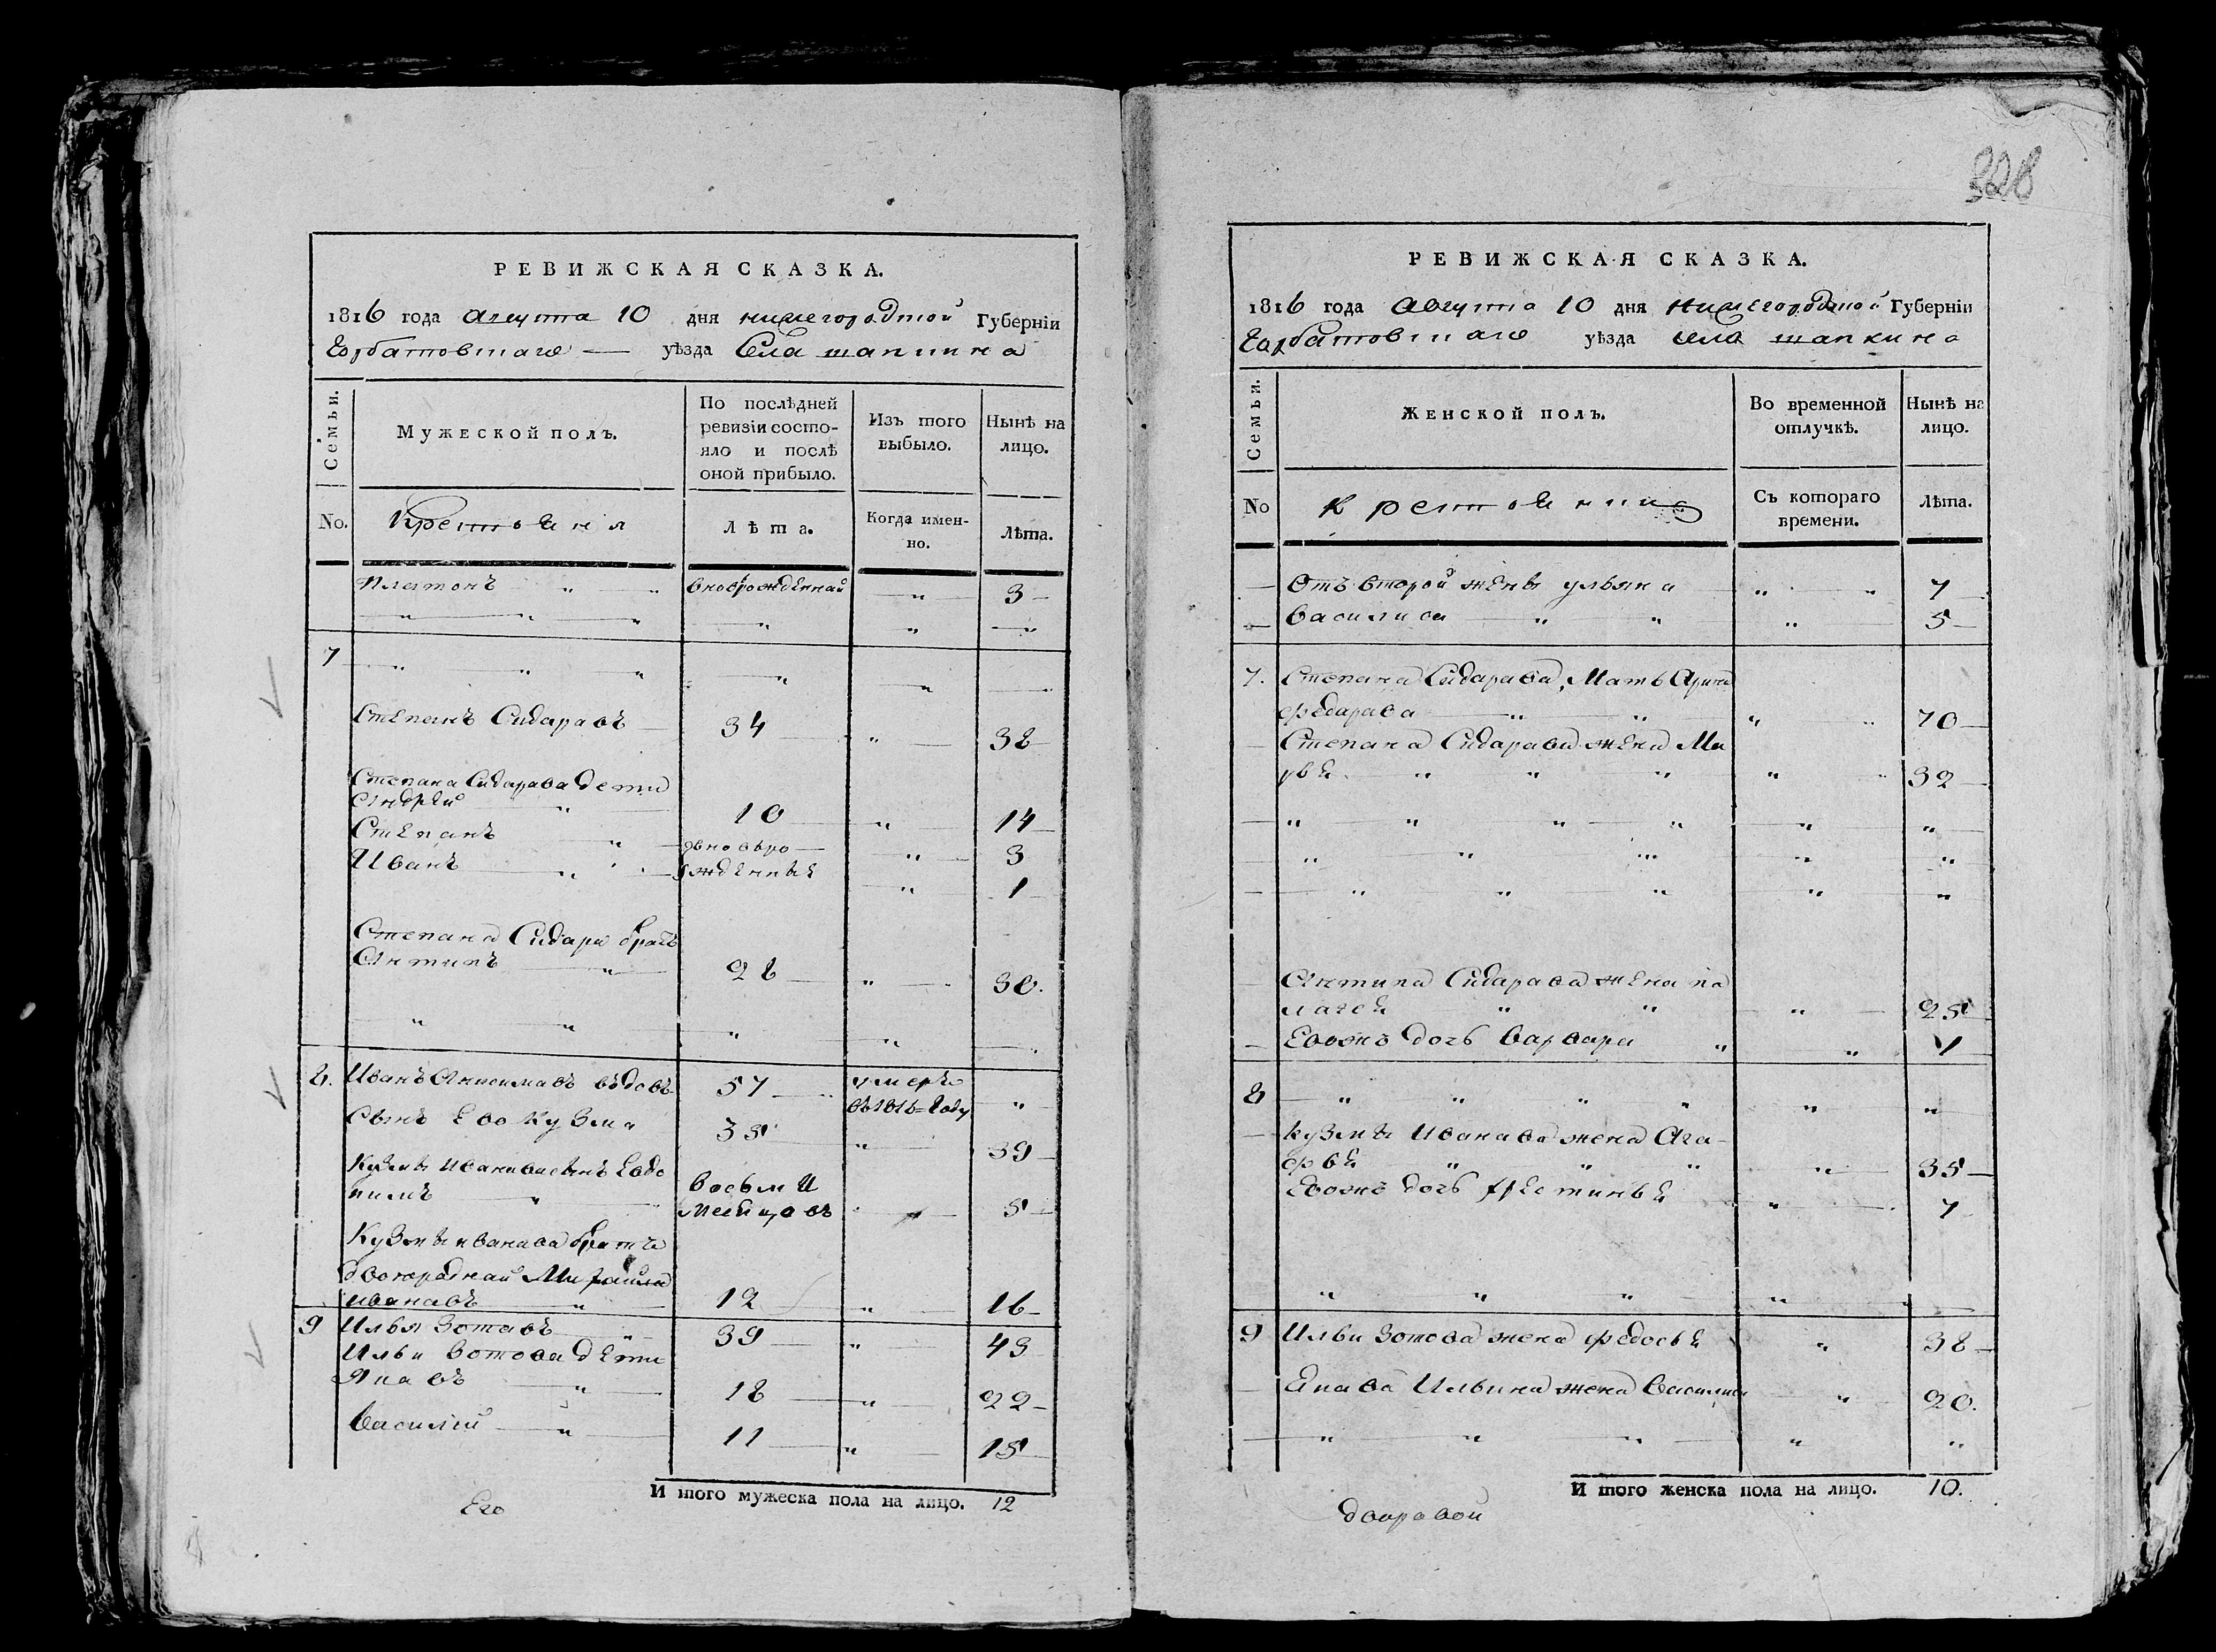 РЕВИЖСКАЯ СКАЗКА.
1816 года Августа 10 дня нижегородской Губерніи
Горбатовскаго — уѣзда Села шапкина
Семьи.
Мужеской полъ.
По послѣдней
ревизіи состо-
яло и послѣ
оной прибыло.
Изъ того
выбыло.
Нынѣ на
лицо.
No.
Крестьяня
Лѣта.
Когда имен-
но.
Лѣта.
Платонъ " " вновьрожденнай " 3
" " " " " "
7 " " " " " "
Степанъ Сидаравъ 34 " 38
Степана Сидарава дети
Андрей " 10 " 14
Степанъ " вновьро- " 3
Иванъ " жденные " 1
Степана Сидара братъ
Антипъ " 28 " 30.
" " " " "
8. Иванъ Анисимавъ вдовъ 57 умеръ "
въ 1816 году
Сынъ Ево Кузма 35 " 39
Кузмы иванава сынъ Евдо
кимъ " восьми
месицовъ " 5
Кузмы иванава братъ
двоюроднай Михайла
иванавъ " 12 " 16
9 Илья Зотавъ 39 " 43
Ильи Зотова дети
Якавъ " 18 " 22
Василий " 11 " 15
И того мужеска пола на лицо. 12
Его
328
РЕВИЖСКАЯ СКАЗКА.
1816 года Августа 10 дня нижегородской Губерніи
Горбатовскаго уѣзда села шапкина
Семьи.
Женской полъ.
Во временной
отлучкѣ.
Нынѣ на
лицо.
No
Съ котораго
времени.
Лѣта.
Отъ второй жены ульяна " " 7
Василиса " " " 5
7. Степана Сидарава, Мать Арина
федарава " " " " 70
Степана Сидарава жена Ма
рья " " " " " 32
" " " " " "
" " " " "
" " " " "
Антипа Сидарава жена па
лагея " " " 25
Евожъ дочь варвара " " 1
8 " " " " " "
кузмы Иванава жена Ага-
фья " " " " 35
Евожъ дочь устинья " 7
" " " " "
9 Ильи Зотова жена федосья " 38
Якава Ильина жена Василиса " 20.
" " " " "
И того женска пола на лицо. 10.
дваровой